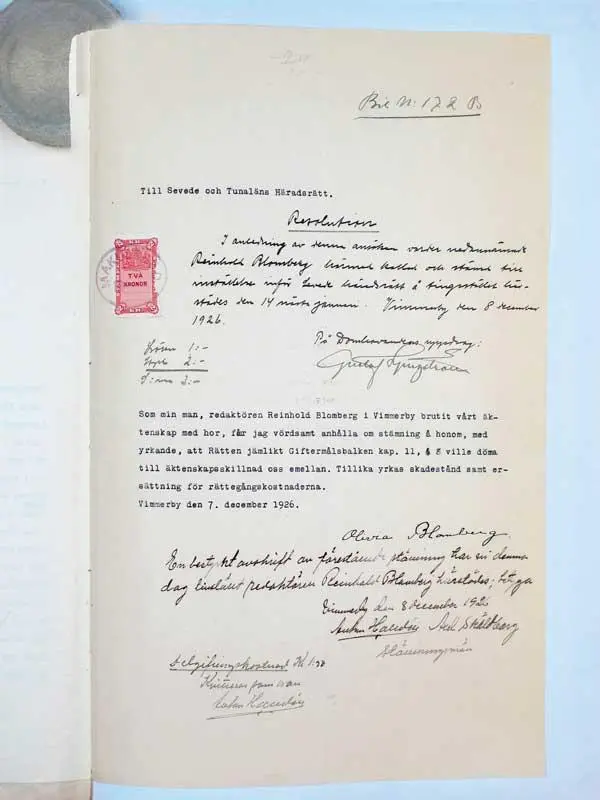 Bil N: 172 B
Till Sevede och Tunaläns Häradsrätt.
Resolution
I anledning av denna ansökan varder nedannämnde
Reinhold Blomberg härmed kallad och stämd till
inställelse inför Sevede häradsrätt å tingsstället här-
städes den 14 nästa januari. Vimmerby den 8 december
1926.
TVÅ
KRONOR
På Domhavandens uppdrag:
Lösen 1:-
Stpl 2:-
S:ma 3:-
Gustaf
Som min man, redaktören Reinhold Blomberg i Vimmerby brutit vårt äk-
tenskap med hor, får jag vördsamt anhålla om stämning å honom, med
yrkande, att Rätten jämlikt Giftermålsbalken kap. 11, § 8 ville döma
till äktenskapsskillnad oss emellan. Tillika yrkas skadestånd samt er-
sättning för rättegångskostnaderna.
Vimmerby den 7. december 1926.
Olivia Blomberg.
En bestyrkt avskrift av förestående stämning har vi denna
dag tillställt redaktören Reinhold Blomberg härstädes; betyga
Vimmerby den 8 december 1926
Axel Sköldberg
Stämningsmän
Delgifningskostnad Kr 1:50
Kvitteras som ovan